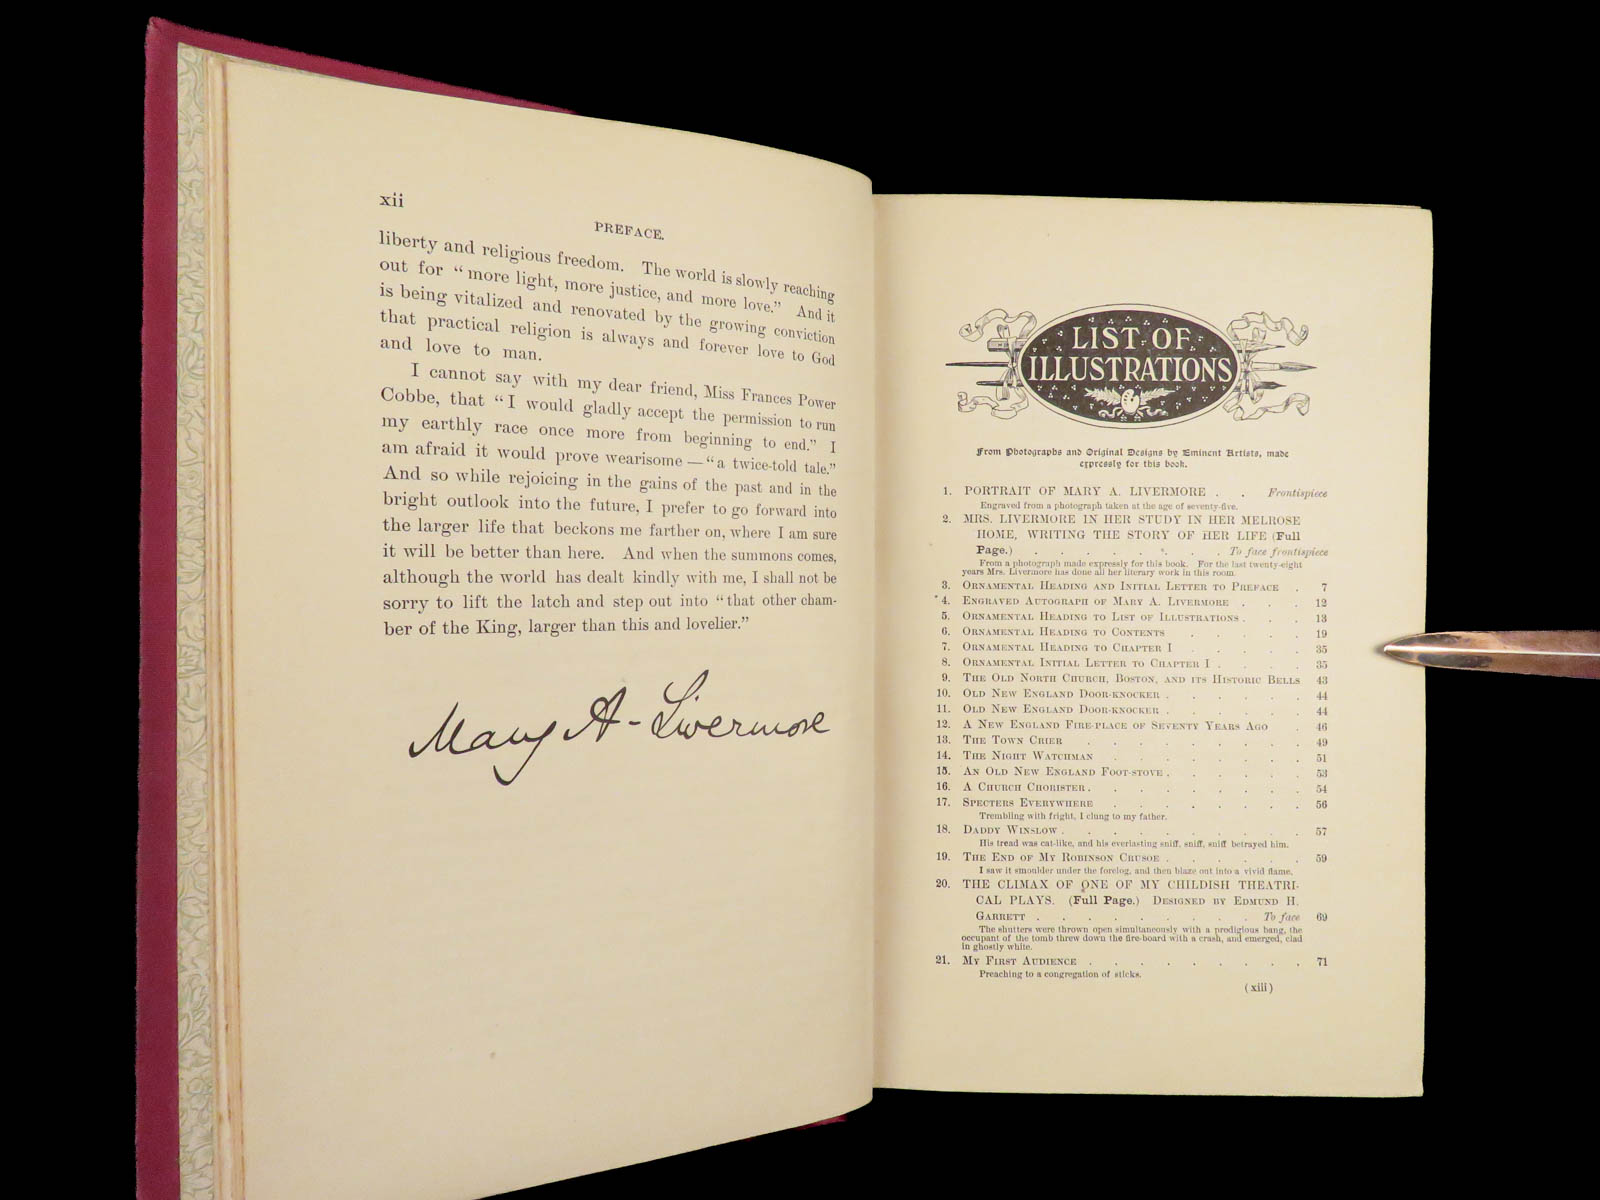 xii
PREFACE.
liberty and religious freedom. The world is slowly reaching
out for “more light, more justice, and more love.” And it
is being vitalized and renovated by the growing conviction
that practical religion is always and forever love to God
and love to man.
I cannot say with my dear friend, Miss Frances Power
Cobbe, that “I would gladly accept the permission to run
my earthly race once more from beginning to end.” I
am afraid it would prove wearisome — “a twice-told tale.”
And so while rejoicing in the gains of the past and in the
bright outlook into the future, I prefer to go forward into
the larger life that beckons me farther on, where I am sure
it will be better than here. And when the summons comes,
although the world has dealt kindly with me, I shall not be
sorry to lift the latch and step out into “that other cham-
ber of the King, larger than this and lovelier.”
Mary A-Livermore
LIST OF
ILLUSTRATIONS
From Photographs and Original Designs by Eminent Artists, made
expressly for this book.
1. PORTRAIT OF MARY A. LIVERMORE . . Frontispiece
Engraved from a photograph taken at the age of seventy-five.
2. MRS. LIVERMORE IN HER STUDY IN HER MELROSE
HOME, WRITING THE STORY OF HER LIFE (Full
Page.) . . . . . . . . To face frontispiece
From a photograph made expressly for this book. For the last twenty-eight
years Mrs. Livermore has done all her literary work in this room.
3. ORNAMENTAL HEADING AND INITIAL LETTER TO PREFACE . 7
4. ENGRAVED AUTOGRAPH OF MARY A. LIVERMORE . . . 12
5. ORNAMENTAL HEADING TO LIST OF ILLUSTRATIONS . . . 13
6. ORNAMENTAL HEADING TO CONTENTS . . . . . 19
7. ORNAMENTAL HEADING TO CHAPTER I . . . . . 35
8. ORNAMENTAL INITIAL LETTER TO CHAPTER I . . . . 35
9. THE OLD NORTH CHURCH, BOSTON, AND ITS HISTORIC BELLS 43
10. OLD NEW ENGLAND DOOR-KNOCKER . . . . . . 44
11. OLD NEW ENGLAND DOOR-KNOCKER . . . . . . 44
12. A NEW ENGLAND FIRE-PLACE OF SEVENTY YEARS AGO . 46
13. THE TOWN CRIER . . . . . . . . 49
14. THE NIGHT WATCHMAN . . . . . . . 51
15. AN OLD NEW ENGLAND FOOT-STOVE . . . . . . 53
16. A CHURCH CHORISTER . . . . . . . . 54
17. SPECTERS EVERYWHERE . . . . . . . 56
Trembling with fright, I clung to my father.
18. DADDY WINSLOW . . . . . . . . . 57
His tread was cat-like, and his everlasting sniff, sniff, sniff betrayed him.
19. THE END OF MY ROBINSON CRUSOE . . . . . . 59
I saw it smoulder under the forelog, and then blaze out into a vivid flame.
20. THE CLIMAX OF ONE OF MY CHILDISH THEATRI-
CAL PLAYS. (Full Page.) DESIGNED BY EDMUND H.
GARRETT . . . . . . . . . To face 69
The shutters were thrown open simultaneously with a prodigious bang, the
occupant of the tomb threw down the fire-board with a crash, and emerged, clad
in ghostly white.
21. MY FIRST AUDIENCE . . . . . . . . . 71
Preaching to a congregation of sticks.
(xiii)